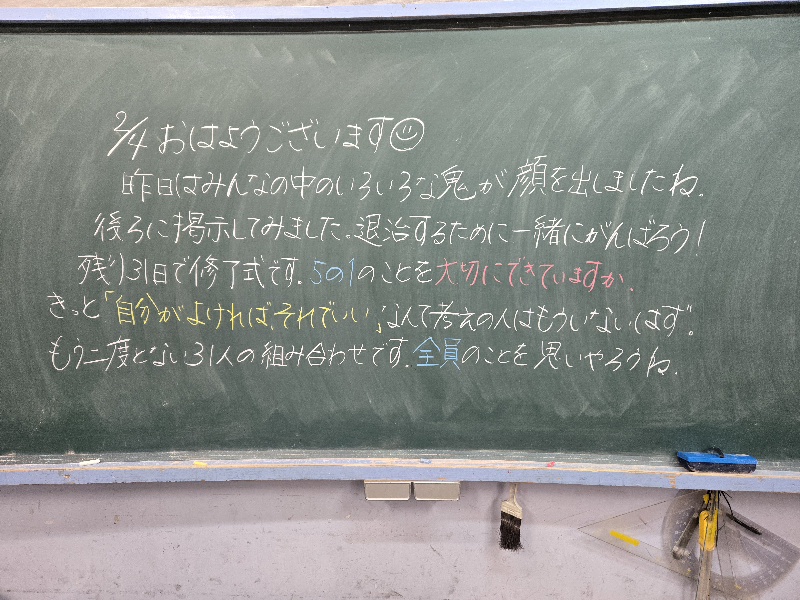 2/4 おはようございます☺
昨日はみんなの中のいろいろな鬼が顔を出しましたね。
後ろに掲示してみました。退治するために一緒にがんばろう!
残り31日で修了式です。5の1のことを大切にできていますか。
きっと「自分がよければ、それでいい」なんて考えの人はもういないはず。
もう二度とない31人の組み合わせです。全員のことを思いやろうね。